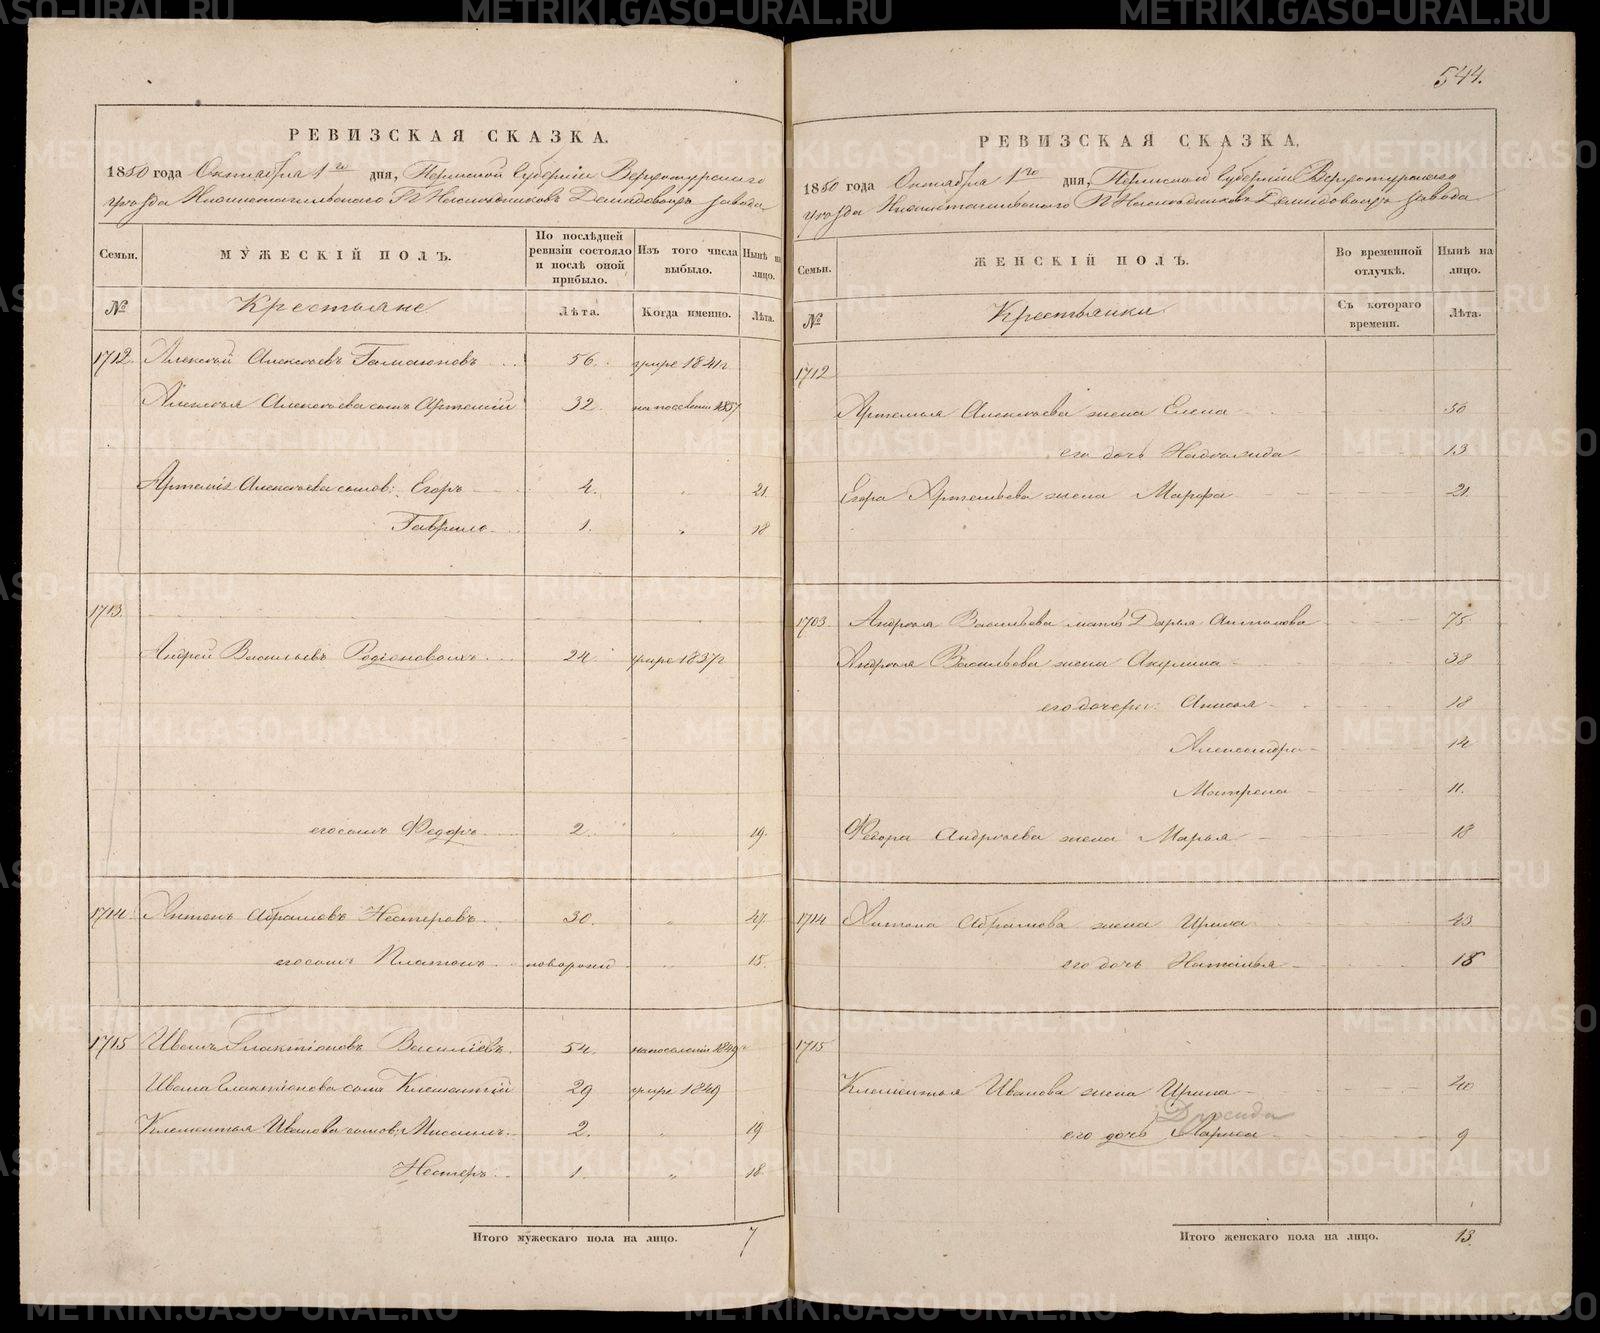 РЕВИЗСКАЯ СКАЗКА.
1850 года Октября 1го дня, Пермской Губерніи Верхотурскаго
уѣзда Нижнетагильскаго Г. Наслѣдниковъ Демидовыхъ завода
Семьи. МУЖЕСКІЙ ПОЛЪ. По послѣдней ревизіи состояло и послѣ оной прибыло. Изъ того числа выбыло. Нынѣ на лицо.
№ Крестьяне Лѣта. Когда именно. Лѣта.
1712. Алексѣй Алексѣевъ 56. умре 1841г
Алексѣя Алексѣева сынъ Артемій 32 на поселеніи 1837
Артемія Алексѣева сынов: Егоръ 4. " 21.
Гаврило 1. " 18
1713.
Андрей Васильевъ Родіоновыхъ 24. умре 1837г
его сынъ Федоръ 2. " 19.
1714. Антонъ Абрамовъ Нестеровъ 30. " 47.
его сынъ Платонъ новорожд 15.
1715 Иванъ Галактіоновъ Василіевъ. 54. на поселеніи 1849г
Ивана Галактіонова сынъ Клементій 29 умре 1849
Клементья Иванова сынов: Михаилъ 2. " 19
Нестеръ 1. " 18.
Итого мужескаго пола на лицо. 7
544.
РЕВИЗСКАЯ СКАЗКА.
1850 года Октября 1го дня, Пермской Губерніи Верхотурскаго
уѣзда Нижнетагильскаго Г. Наслѣдниковъ Демидовыхъ завода
Семьи. ЖЕНСКІЙ ПОЛЪ. Во временной отлучкѣ. Нынѣ на лицо.
№ Крестьянки Съ котораго времени. Лѣта.
1712
Артемья Алексѣева жена Елена 50
его дочь Надежида 13
Егора Артемьева жена Марфа 21.
1703. Андрея Васильева мать Дарья Антонова 75.
Андрея Васильева жена Акулина 38
его дочери: Анисья 18
Александра 14
Матрена 11.
Федора Андрѣева жена Марья 18
1714 Антона Абрамова жена Ирина 43
его дочь Наталья 18
1715
Клементья Иванова жена Ирина 40
его дочь Лариса 9
Итого женскаго пола на лицо. 13.
METRIKI.GASO-URAL.RU